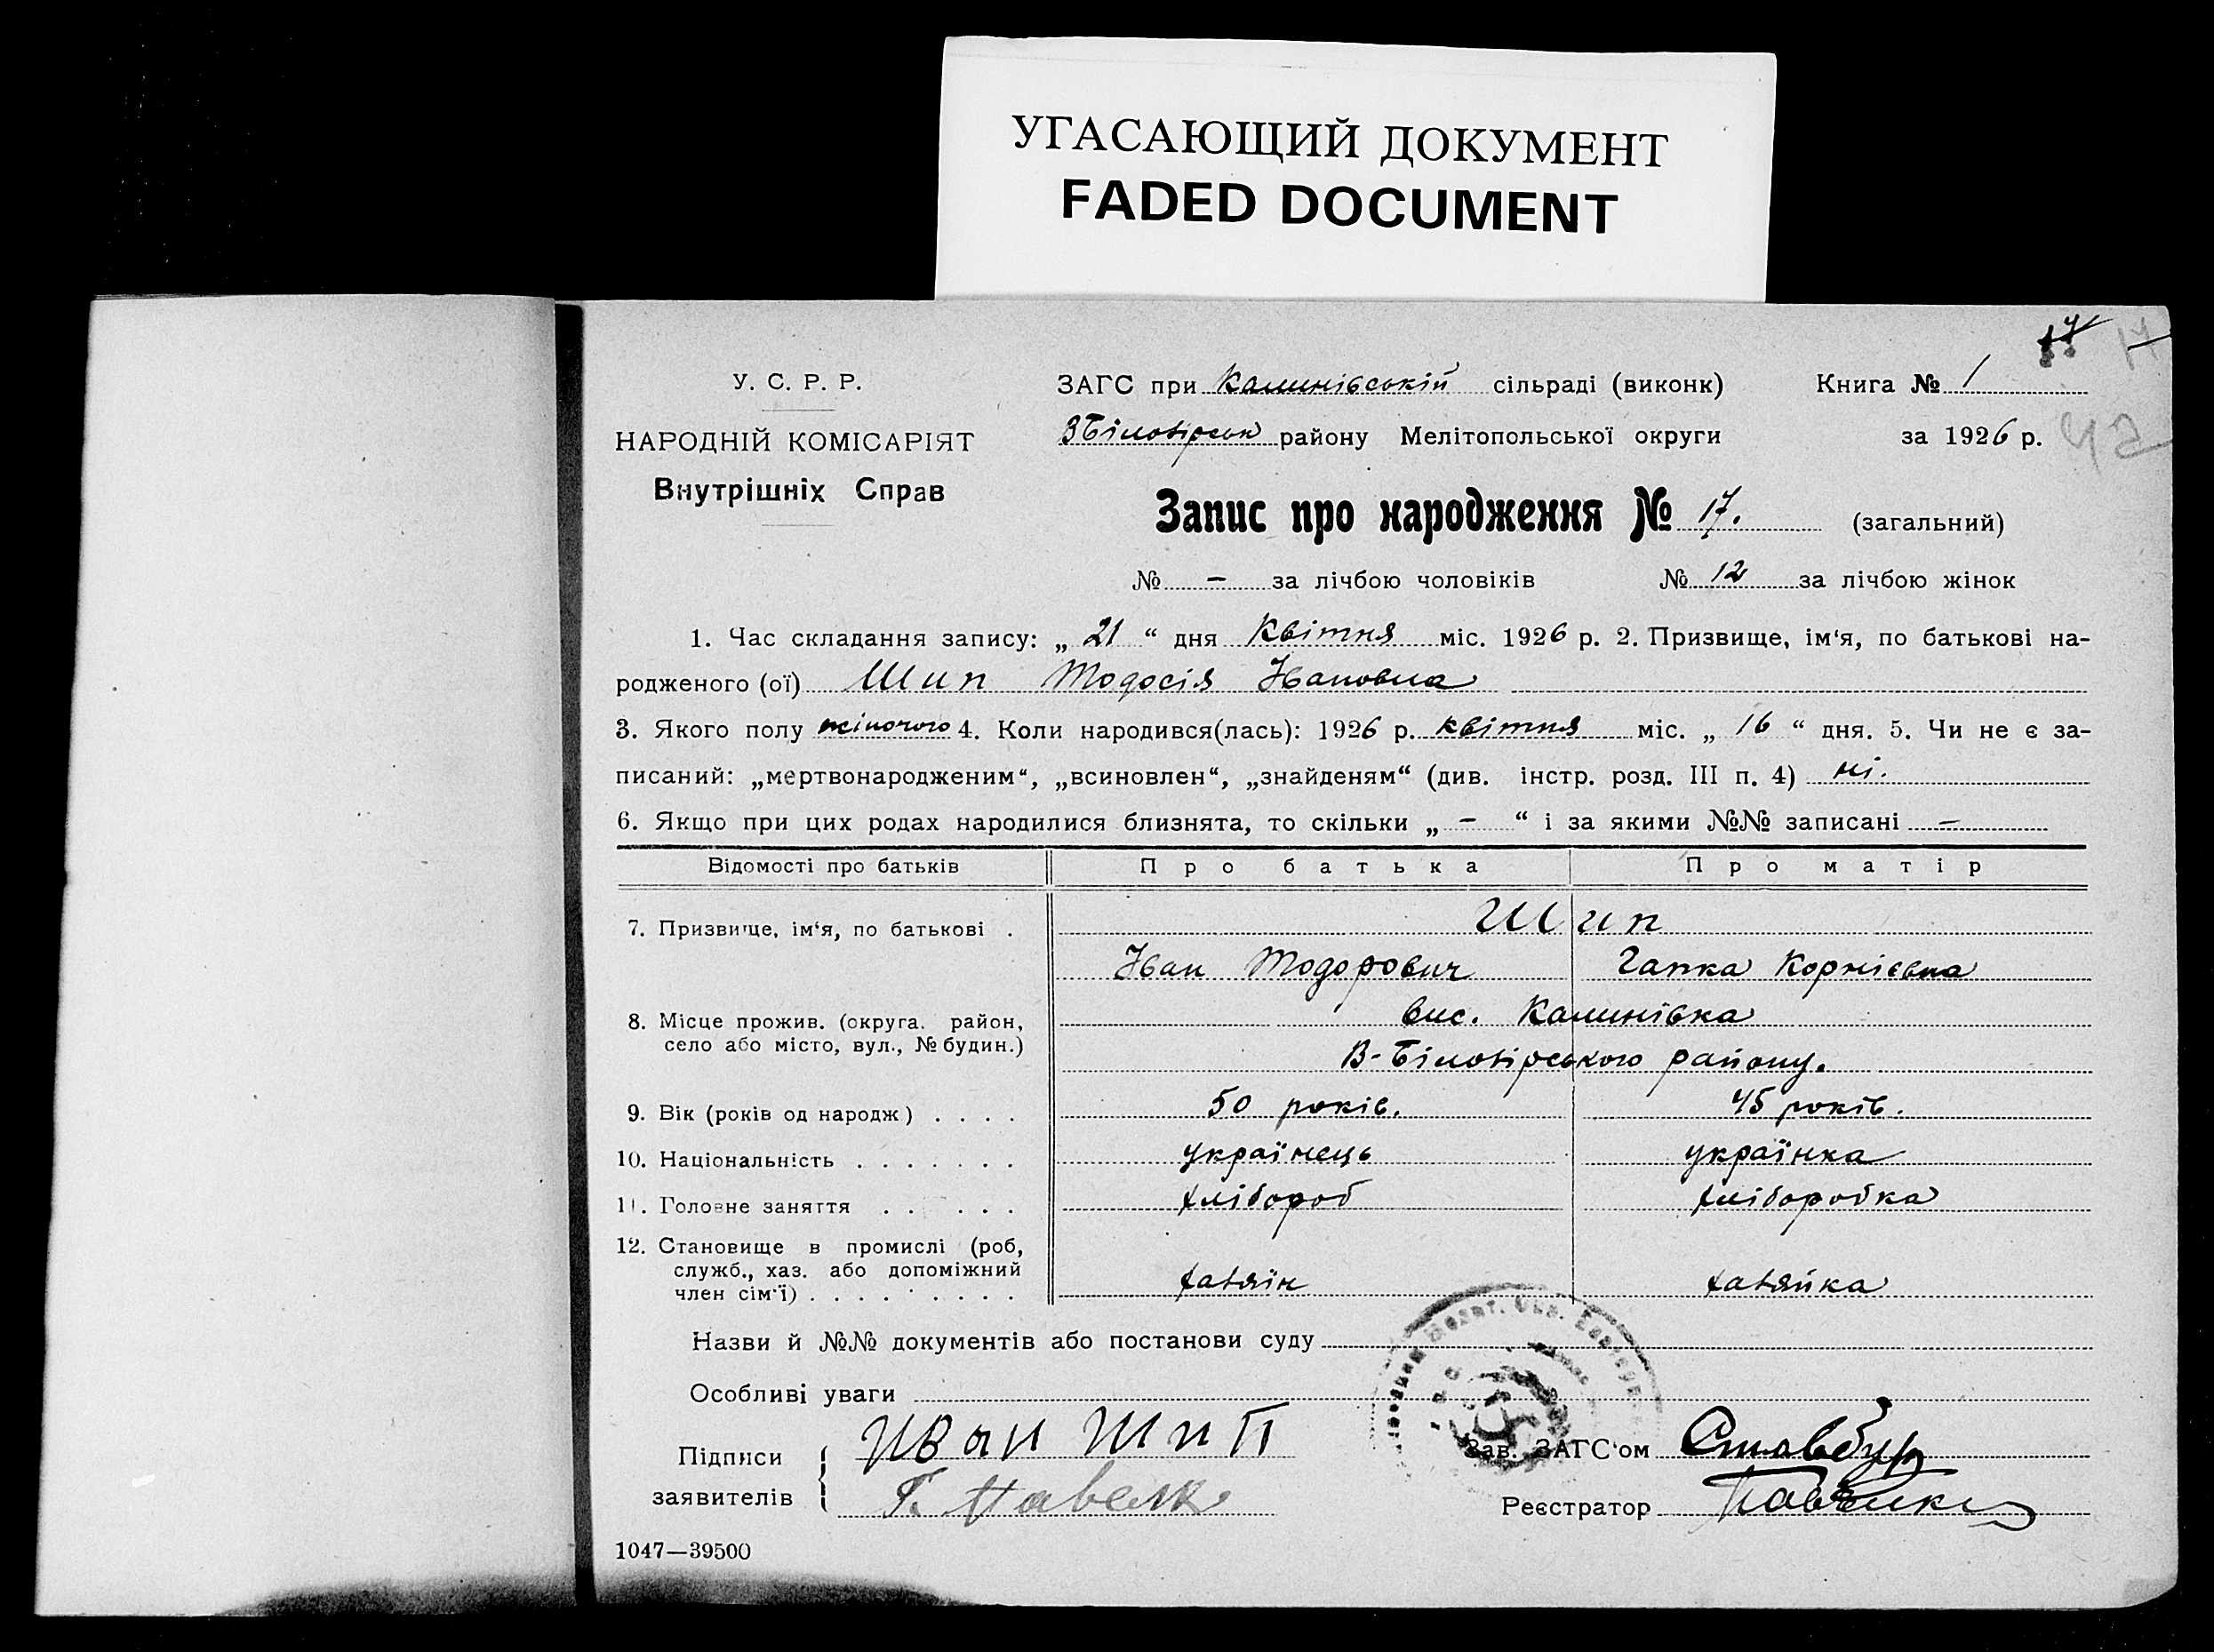 УГАСАЮЩИЙ ДОКУМЕНТ
FADED DOCUMENT
17 17
42
У. С. Р. Р.
НАРОДНІЙ КОМІСАРІЯТ
Внутрішніх Справ
ЗАГС при Калинівській сільраді (виконк) Книга № 1
ВБілозірськ району Мелітопольської округи за 1926 р.
Запис про народження № 17. (загальний)
№ — за лічбою чоловіків № 12 за лічбою жінок
1. Час складання запису: „ 21 “ дня Квітня міс. 1926 р. 2. Призвище, ім‘я, по батькові на-
родженого (ої) Шип Тодосія Івановна
3. Якого полу жіночого 4. Коли народився(лась): 1926 р. квітня міс. „ 16 “ дня. 5. Чи не є за-
писаний: „мертвонародженим“, „всиновлен“, „знайденям“ (див. інстр. розд. III п. 4) ні.
6. Якщо при цих родах народилися близнята, то скільки „ — “ і за якими №№ записані —
Відомості про батьків Про батька Про матір
7. Призвище, ім‘я, по батькові . Шип
Іван Тодорович Гапка Корнієвна
8. Місце прожив. (округа. район, вис. Калинівка
село або місто, вул., № будин.) В-Білозірського району.
9. Вік (років од народж) . . . . 50 років. 45 років.
10. Національність . . . . . . . українець українка
11. Головне заняття . . . . . хлібороб хліборобка
12. Становище в промислі (роб,
служб., хаз. або допоміжний
член сім‘ї) . . . . . . . . . хазяїн хазяйка
Назви й №№ документів або постанови суду
Особливі уваги
Підписи Иван Шип Зав. ЗАГС‘ом
заявителів Реєстратор
1047—39500